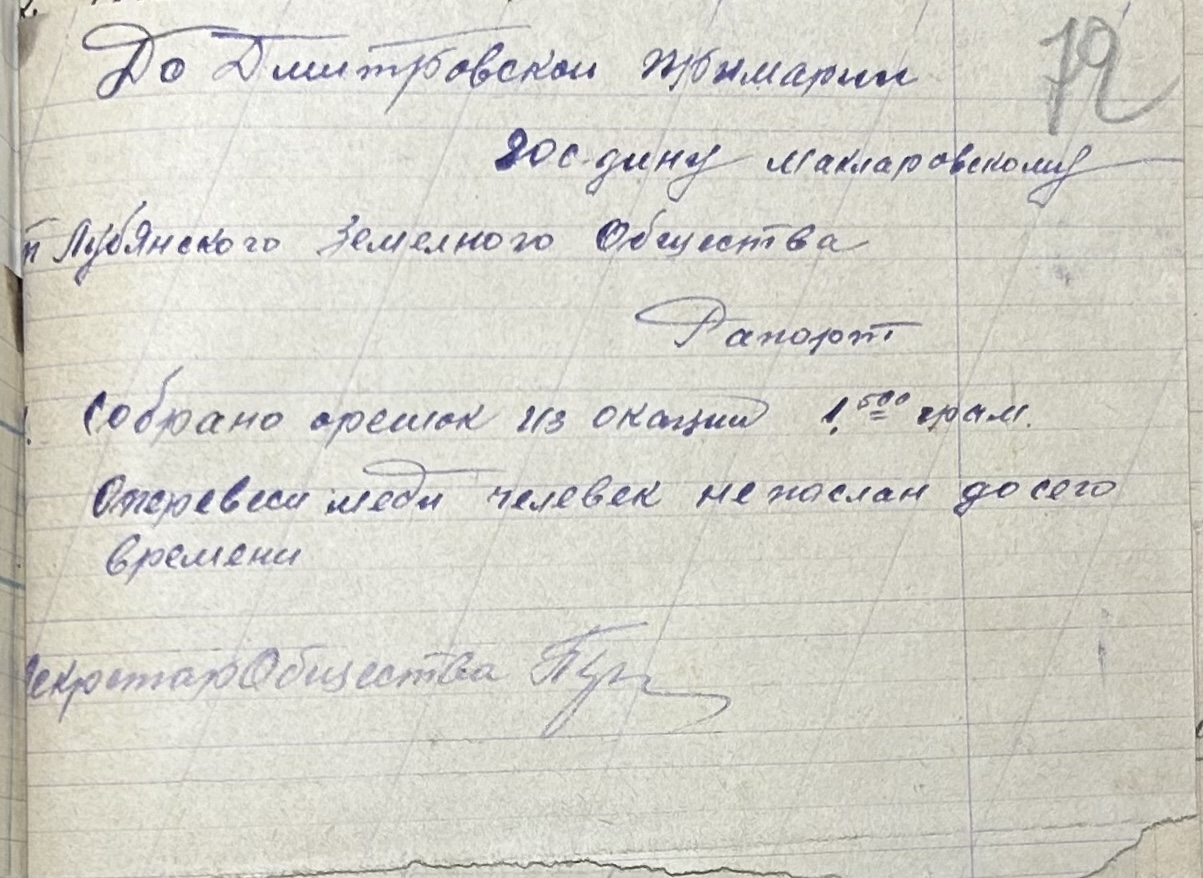 До Дмитровской
72
Гос-дину Макларовскому
Лубянского Земелного Общества
Рапорт
Собрано орешок из окации 1.500 грам.
человек не послан до сего
времени
Секретар Общества